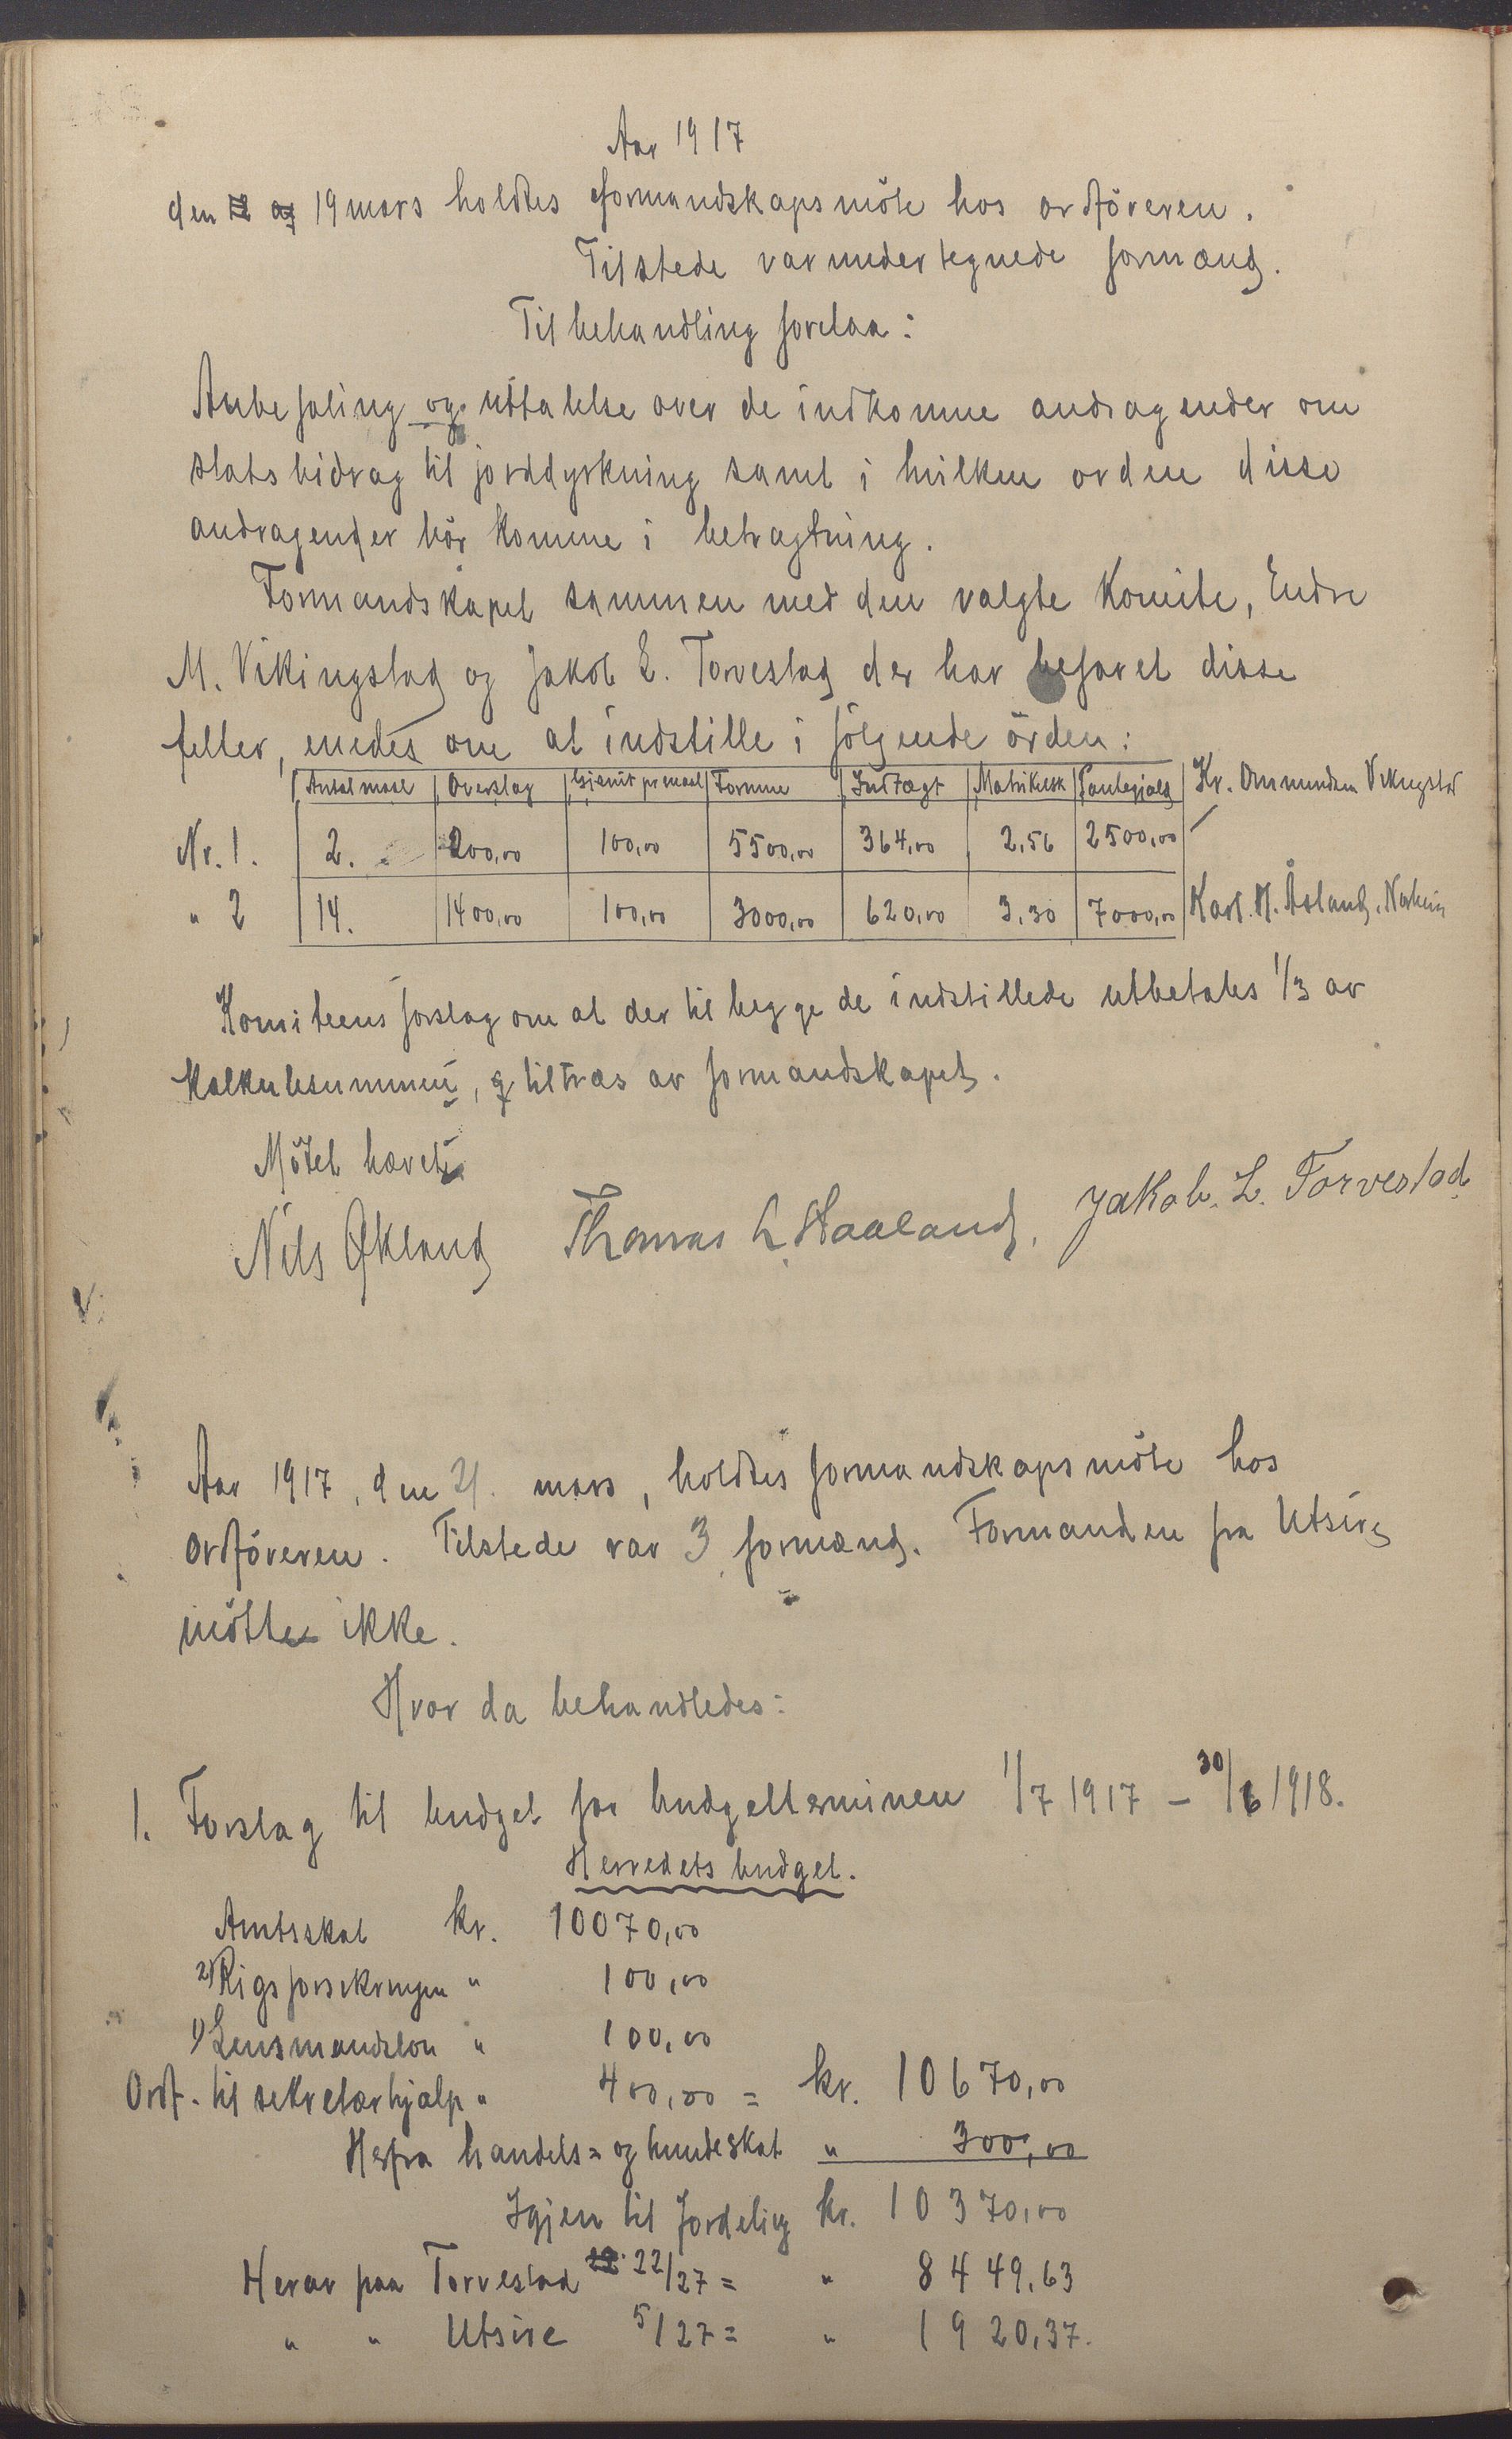 Aar 1917
den 19 mars holdtes formandskapsmöte hos ordföreren.
Tilstede var undertegnede formænd.
Til behandling forelaa:
Anbefaling og uttalelse over de indkomne andragender om
statsbidrag til jorddyrkning samt i hvilken orden disse
andragender bör komme i betragtning.
Formandskapet sammen med den valgte komite, Endre
M. Vikingstad og Jakob L. Torvestad der har befaret disse
felter, enedes om at indstille i fölgende orden:
Antal maal Overslag Gjennt pr maal Formue Indtægt Matrikelsk Pantegjæld Kr. Ommundsen Vikingstad
Nr. 1. 2. 200,00 100,00 5500,00 364,00 2,56 2500,00
" 2 14. 1400,00 100,00 3000,00 620,00 3,30 7000,00 Karl. M. Åsland, Norheim
Komiteens forslag om at der til begge de indstillede utbetales 1/3 av
kalkulesummen, tiltræs av formandskapet.
Mötet hævet
Nils Økland Thomas L. Haaland, Jakob. L. Torvestad
Aar 1917, den 21. mars, holdtes formandskapsmöte hos
ordföreren. Tilstede var 3 formænd. Formanden fra Utsire
mötte ikke.
Hvor da behandledes:
1. Forslag til budget for budgetterminen 1/7 1917 - 30/6 1918.
Herredets budget.
Amtsskat kr. 10070,00
2) Rigsforsikringen " 100,00
1) Lensmandslön " 100,00
Ordf. til sekretærhjælp " 400,00 = kr. 10670,00
Herfra handels= og hundeskat " 300,00
Igjen til fordeling kr. 10370,00
Herav paa Torvestad 22/27 = " 8449,63
" " Utsire 5/27 = " 1920,37.